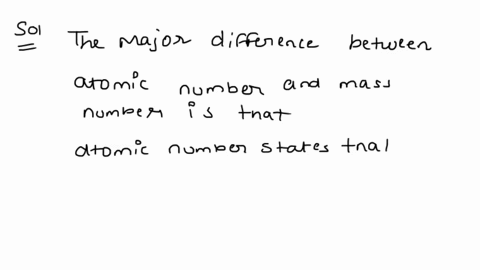 Sol The major difference between
atomic number and mass
number is that
atomic number states that